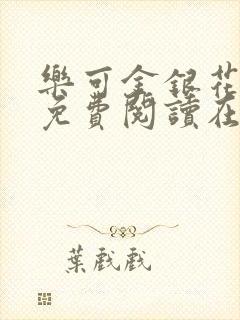 樂可金銀花
免費閱讀在
葉戲戲